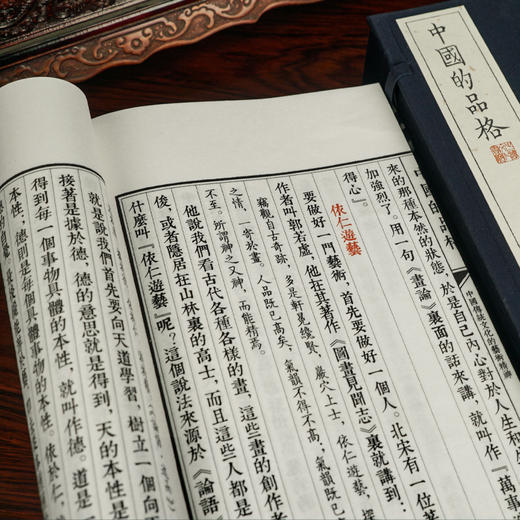 中國的品格
中國的品格
中國傳統文化的藝術精神
來的那種本然的狀態，於是自己內心對於人生和
加強烈了。用一句《畫論》裏面的話來講，就叫作『萬事
得心』。
依仁遊藝
要做好一門藝術，首先要做好一個人。北宋有一位著
作者叫郭若虛，他在其著作《圖畫見聞志》裏就講到：
竊觀自古奇跡，多是軒冕纔賢，巖穴上士，依仁遊藝，探
之情，一寄於畫。人品既已高矣，氣韻不得不高，氣韻既已
不至。所謂神之又神，而能精焉。
是說我們看古代各種各樣的畫，這些畫的創作者
後，或者隱居在山林裏的高士，而且這些人都是
什麼叫『依仁遊藝』呢？這個說法來源於《論語
就是說我們首先要向天道學習，樹立一個向
接著是據於德，德的意思就是得到，天的本性是
得到每一個事物具體的本性，就叫作德。道是
本性，德則是每個具體事物的本性。依於仁，